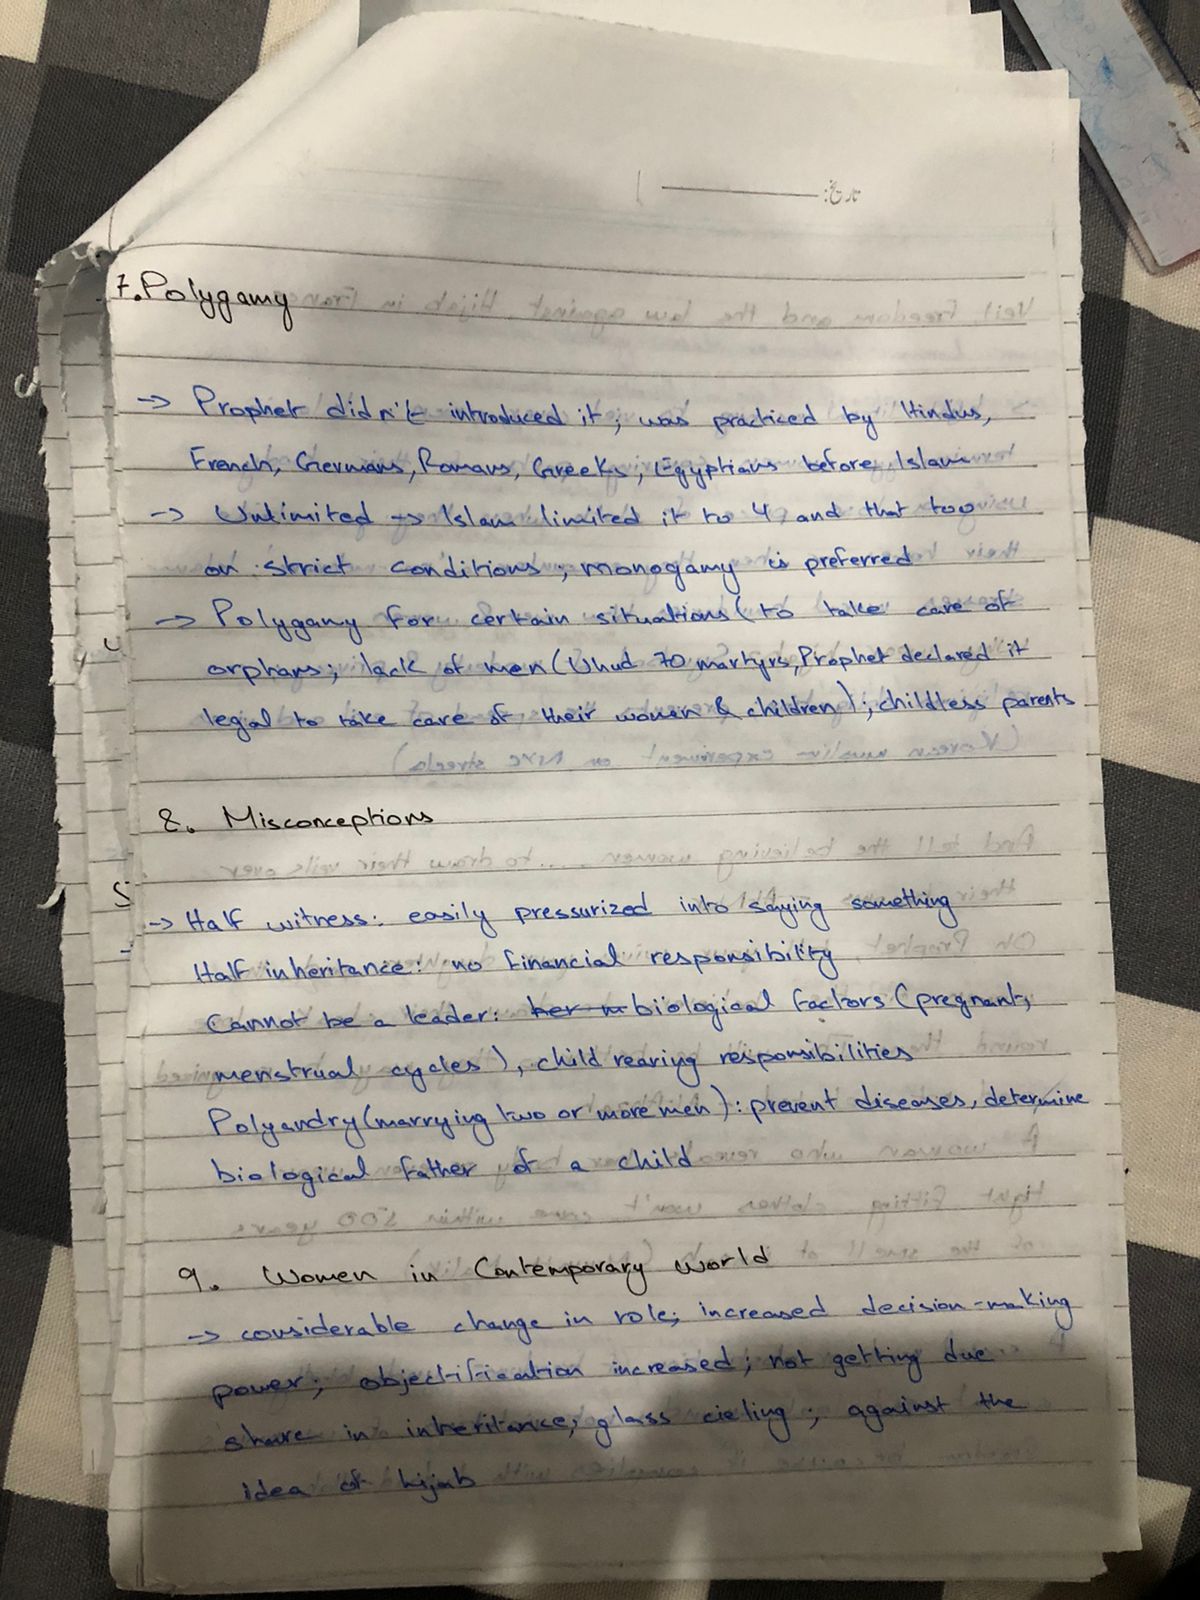 تاریخ:
7. Polygamy
-> Prophet didn't introduced it; was practiced by Hindus,
French, Germans, Romans, Greeks, Egyptians before Islam
-> Unlimited -> Islam limited it to 4, and that too
on strict conditions; monogamy is preferred
-> Polygamy for certain situations (to take care of
orphans; lack of men (Uhud 70 martyrs, Prophet declared it
legal to take care of their women & children); childless parents
8. Misconceptions
-> Half witness: easily pressurized into saying something
Half inheritance: no financial responsibility
Cannot be a leader: biological factors (pregnant,
menstrual cycles), child rearing responsibilities
Polyandry (marrying two or more men): prevent diseases, determine
biological father of a child
9. Women in Contemporary World
-> considerable change in role; increased decision-making
power; objectification increased; not getting due
share in inheritance; glass cieling; against the
idea of hijab